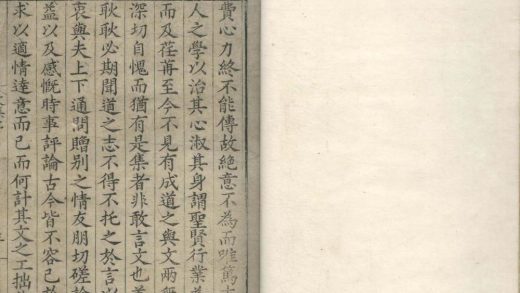 費心力終不能傳故絕意不為而唯篤
人之學以治其心淑其身謂聖賢行業
而及荏苒至今不見有成道之與文兩
深切自愧而猶有是集者非敢言文也
耿耿必期聞道之志不得不托之於言以
衷與夫上下通問贈別之情友朋切磋
益以及感慨時事評論古今皆不容已
求以適情達意而已而何計其文之工拙